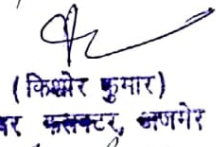 (किशोर कुमार)
र कलक्टर, अजमेर